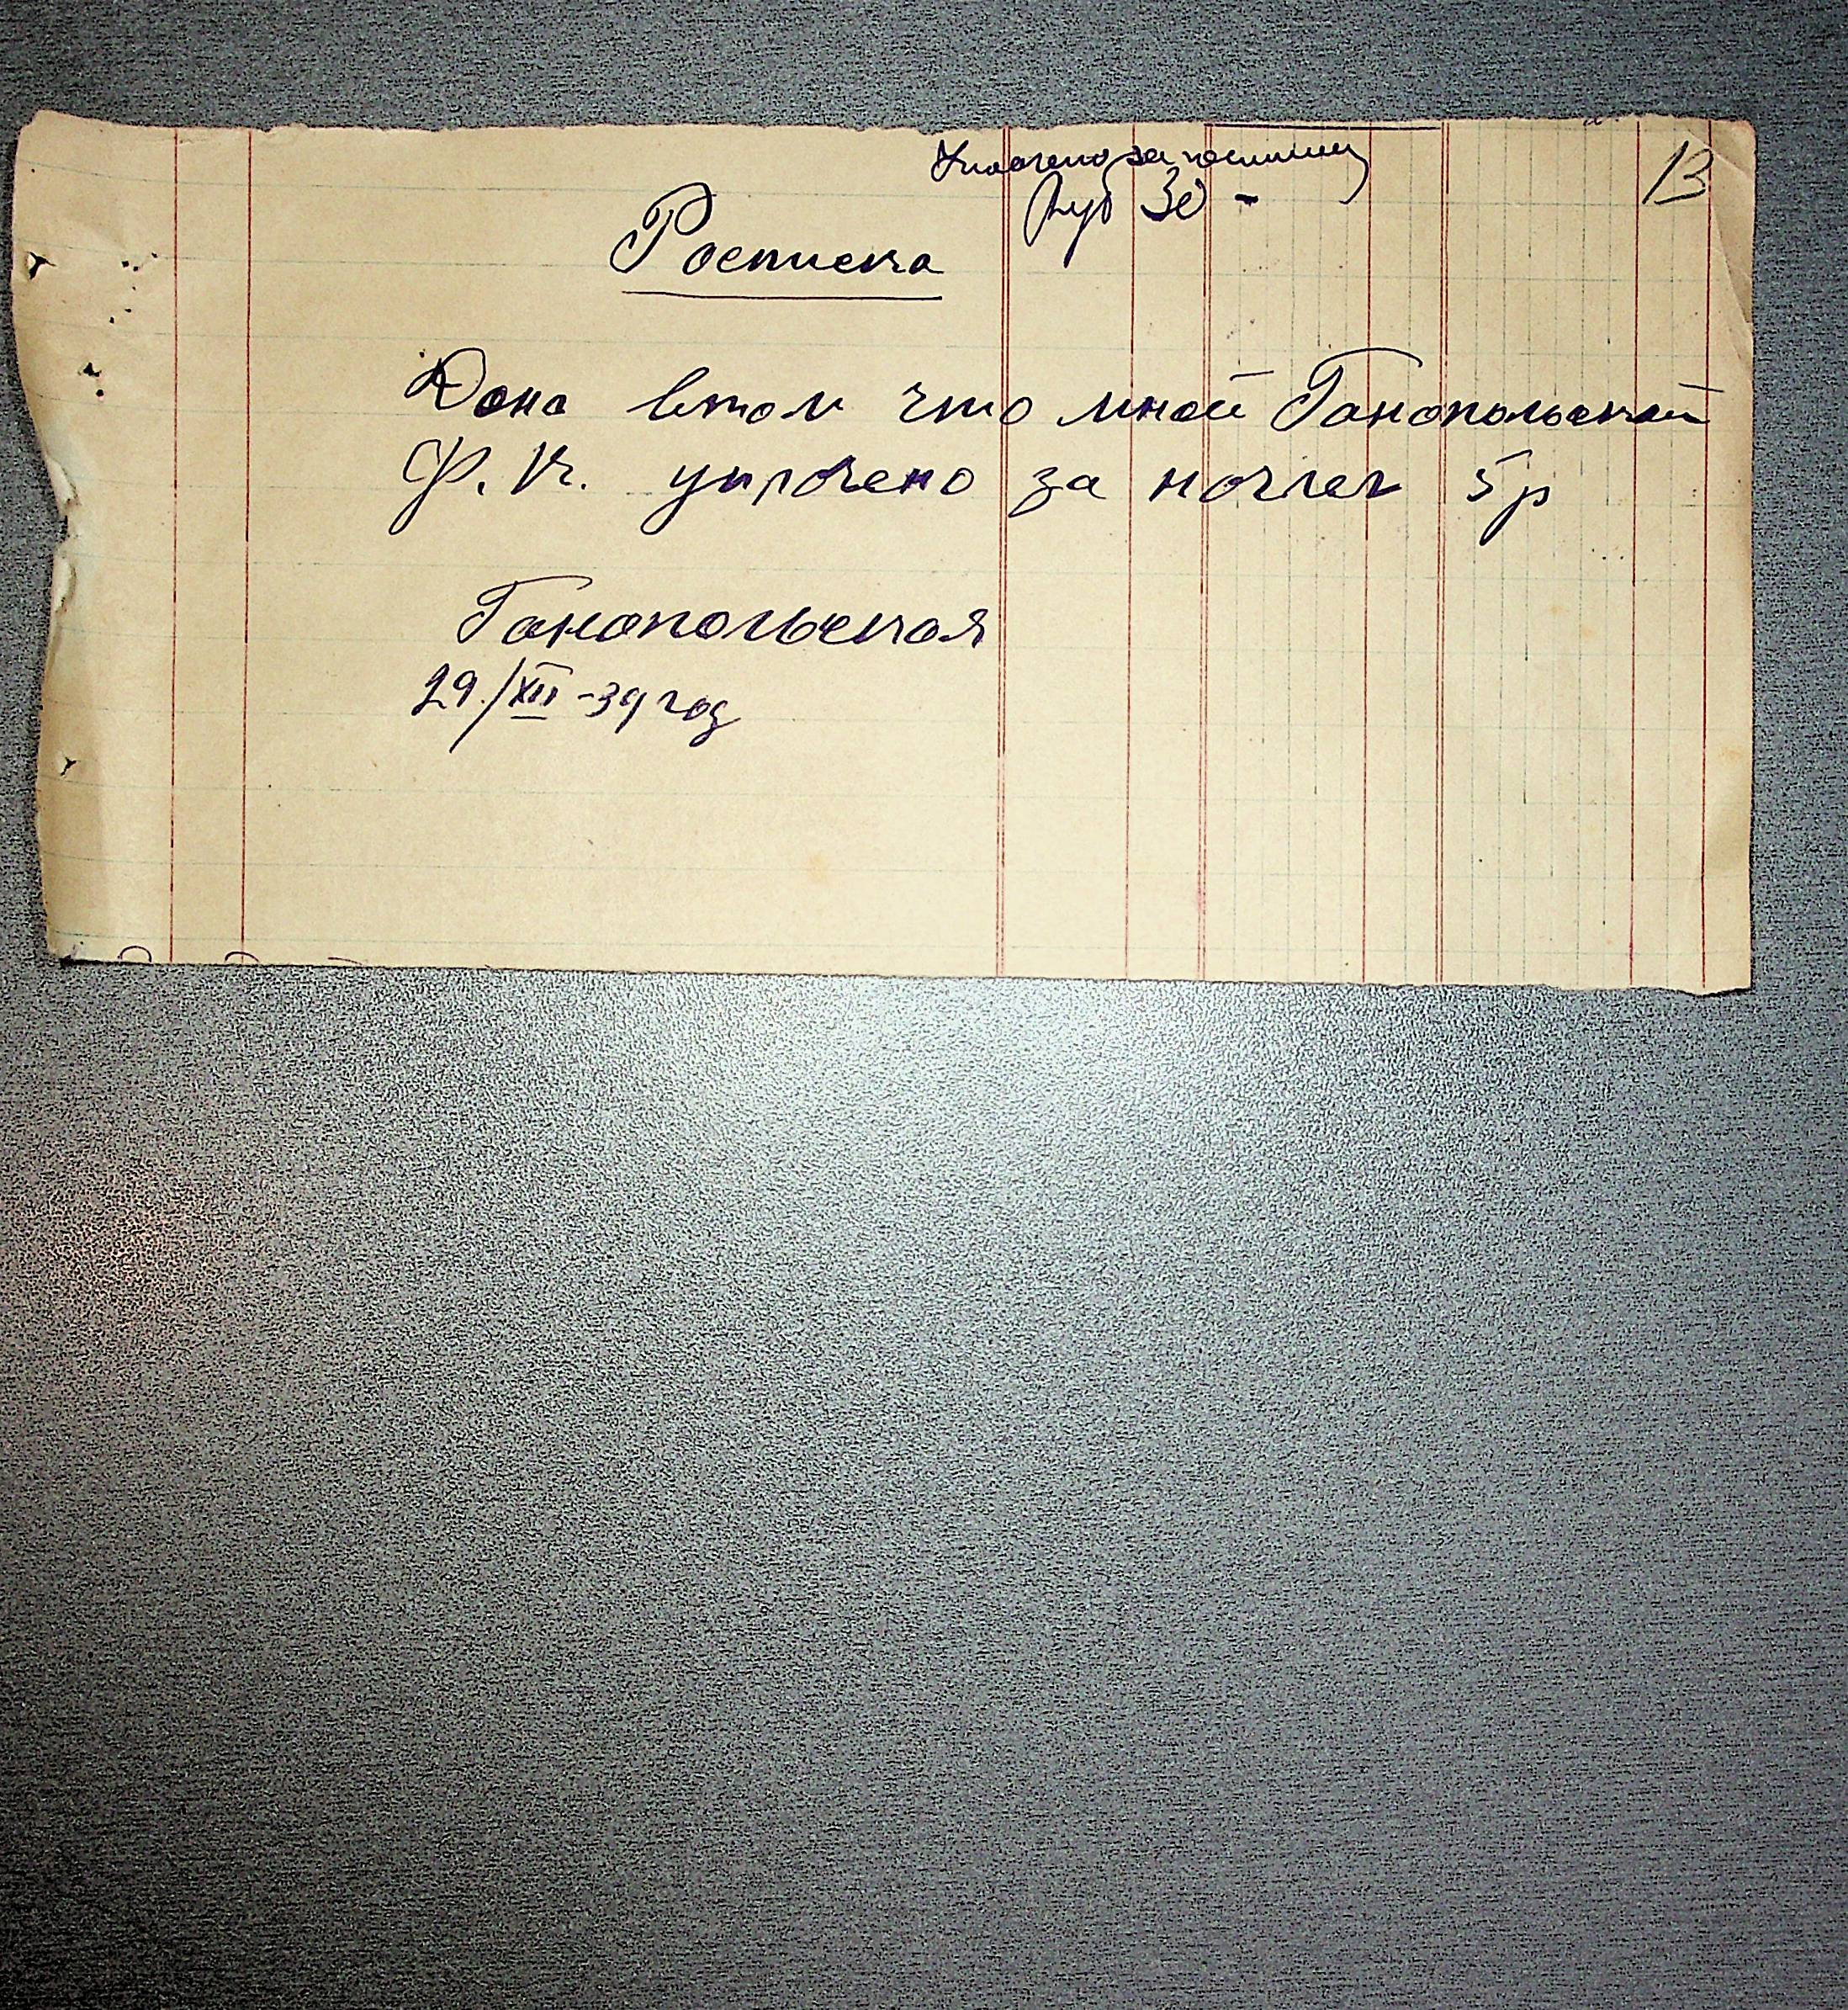 Уплочено за гостиницу
Руб 30 -
13
Росписка
Дана втом что мной Ганопольской
Ф. К. уплочено за ночлег 5р
Ганопольская
29/XII -39 год